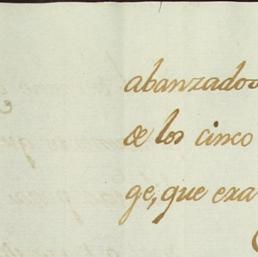 abanzado
de los cinco
ge, que exa